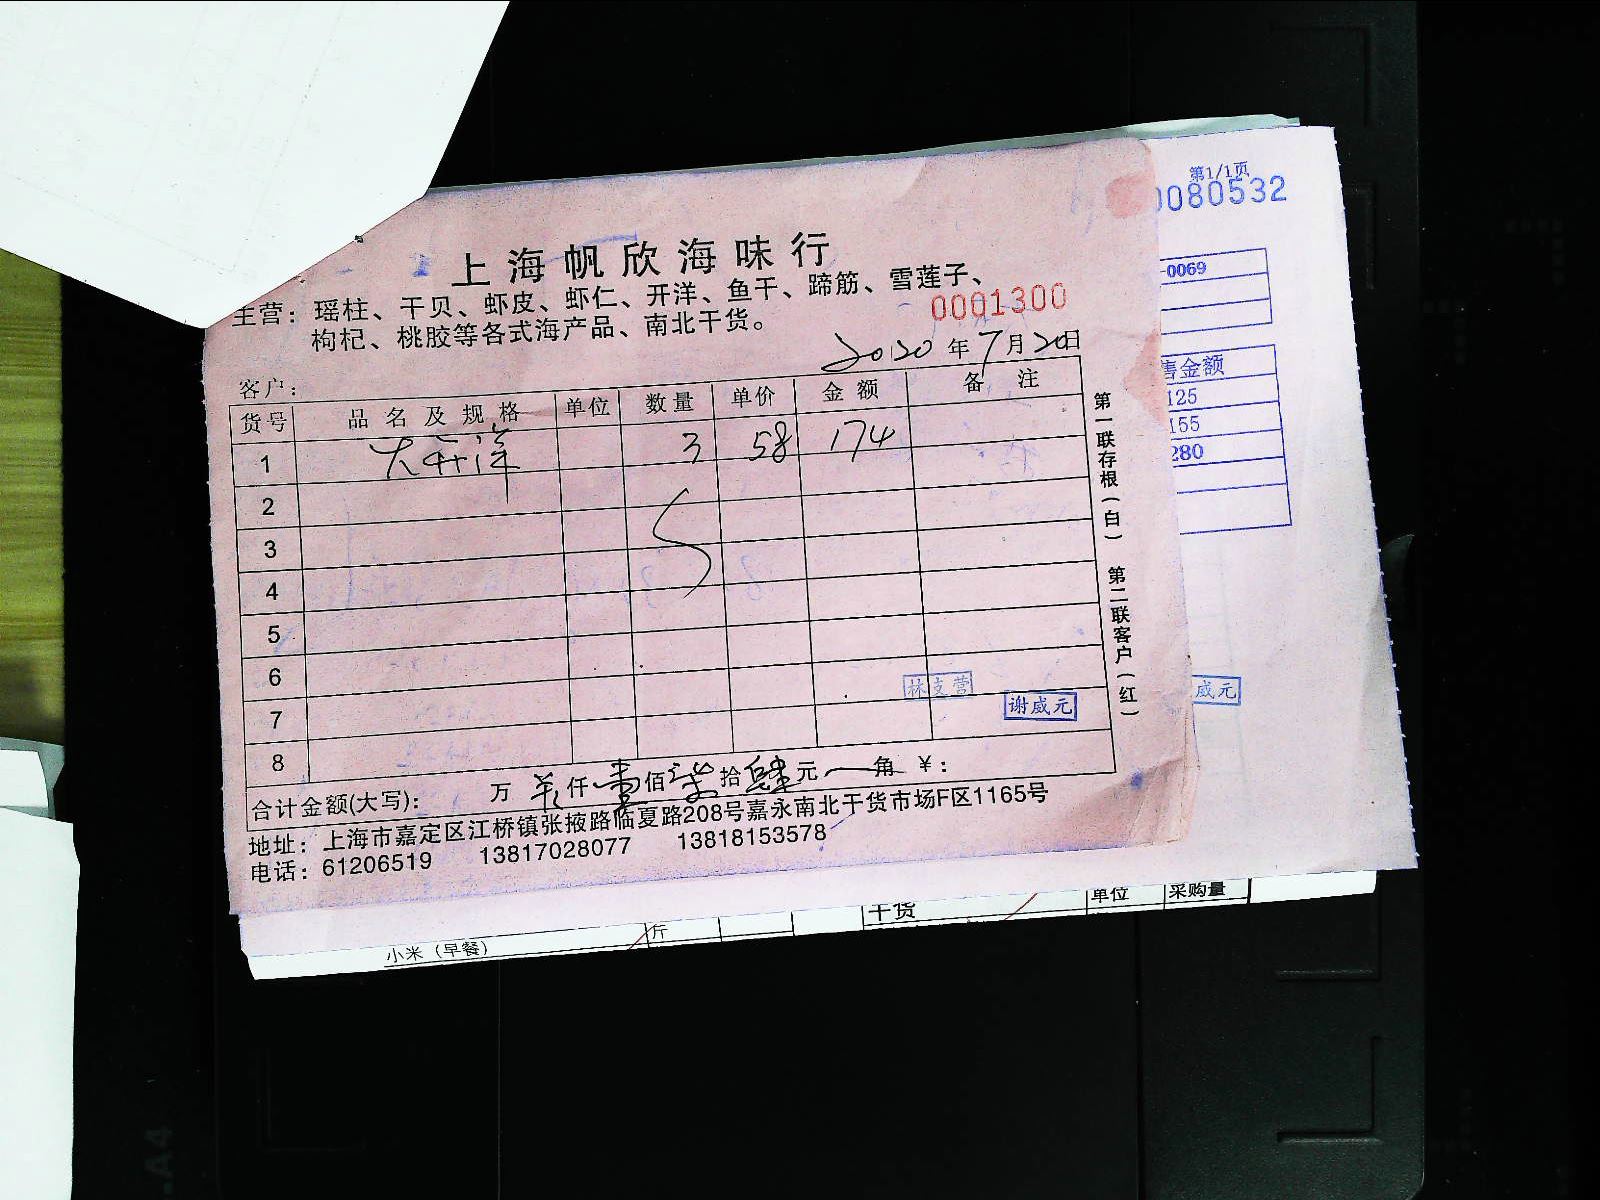 第1/1页
0080532
上海帆欣海味行
主营：瑶柱、干贝、虾皮、虾仁、开洋、鱼干、蹄筋、雪莲子、
枸杞、桃胶等各式海产品、南北干货。
0001300
2020年7月20日
客户：
货号 品名及规格 单位 数量 单价 金额 备注
1 大开洋 3 58 174
2
3
4
5
6
7
8
林支营
谢威元
合计金额(大写)： 万 仟壹佰柒拾肆元一角 ￥：
地址：上海市嘉定区江桥镇张掖路临夏路208号嘉永南北干货市场F区1165号
电话：61206519 13817028077 13818153578
第一联存根（白） 第二联客户（红）
-0069
售金额
125
155
280
威元
干货 单位 采购量
小米（早餐） 斤
A4